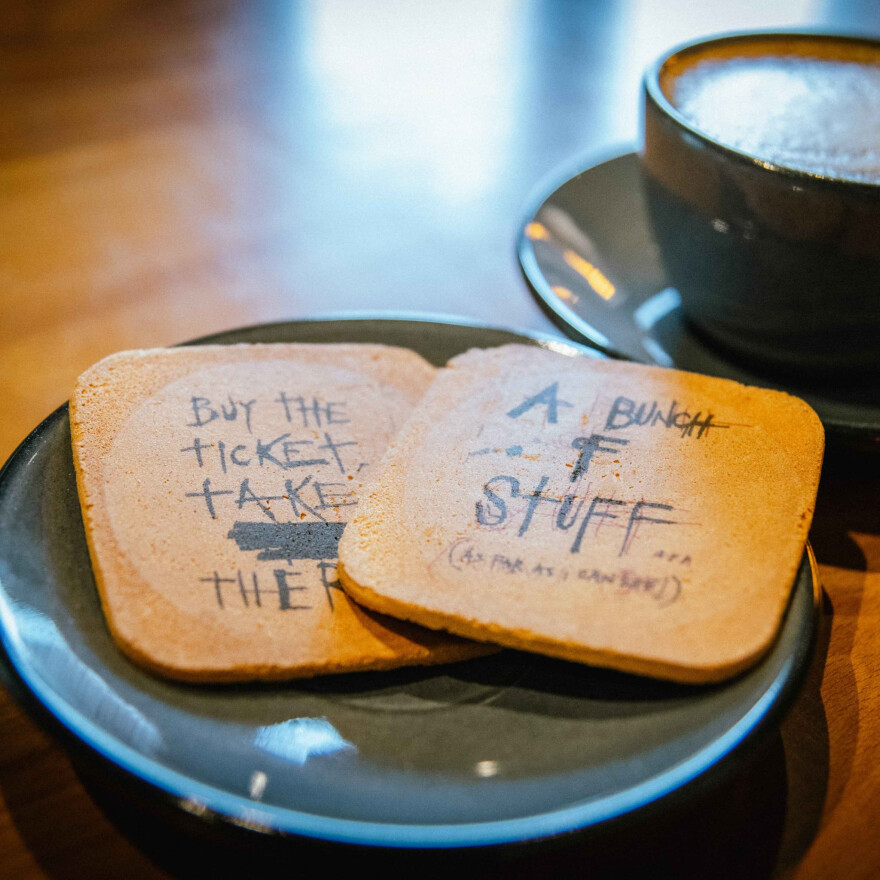 BUY THE
TICKET,
TAKE
THE
A BUNCH
OF
STUFF...
(AS FAR AS I CAN SEE!)